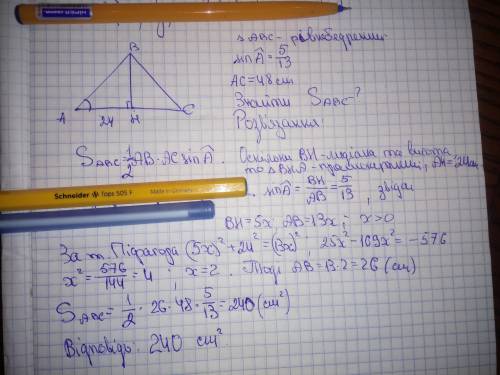 HIPER
△ABC - рівнобедрений
sin Â = 5/13
AC = 48 см
Знайти S_ABC?
Розв'язання:
B
A 24 H C
S_ABC = 1/2 AB · AC sin Â. Оскільки BH - медіана та висота,
то △BHA - прямокутний, AH = 24 см
Schneider Tops 505 F
sin Â = BH/AB = 5/13, звідси
BH = 5x, AB = 13x; x > 0
За т. Піфагора (5x)² + 24² = (13x)², 25x² - 169x² = -576
x² = 576/144 = 4; x = 2. Тоді AB = 13 · 2 = 26 (см)
S_ABC = 1/2 · 26 · 48 · 5/13 = 240 (см²)
Відповідь: 240 см².